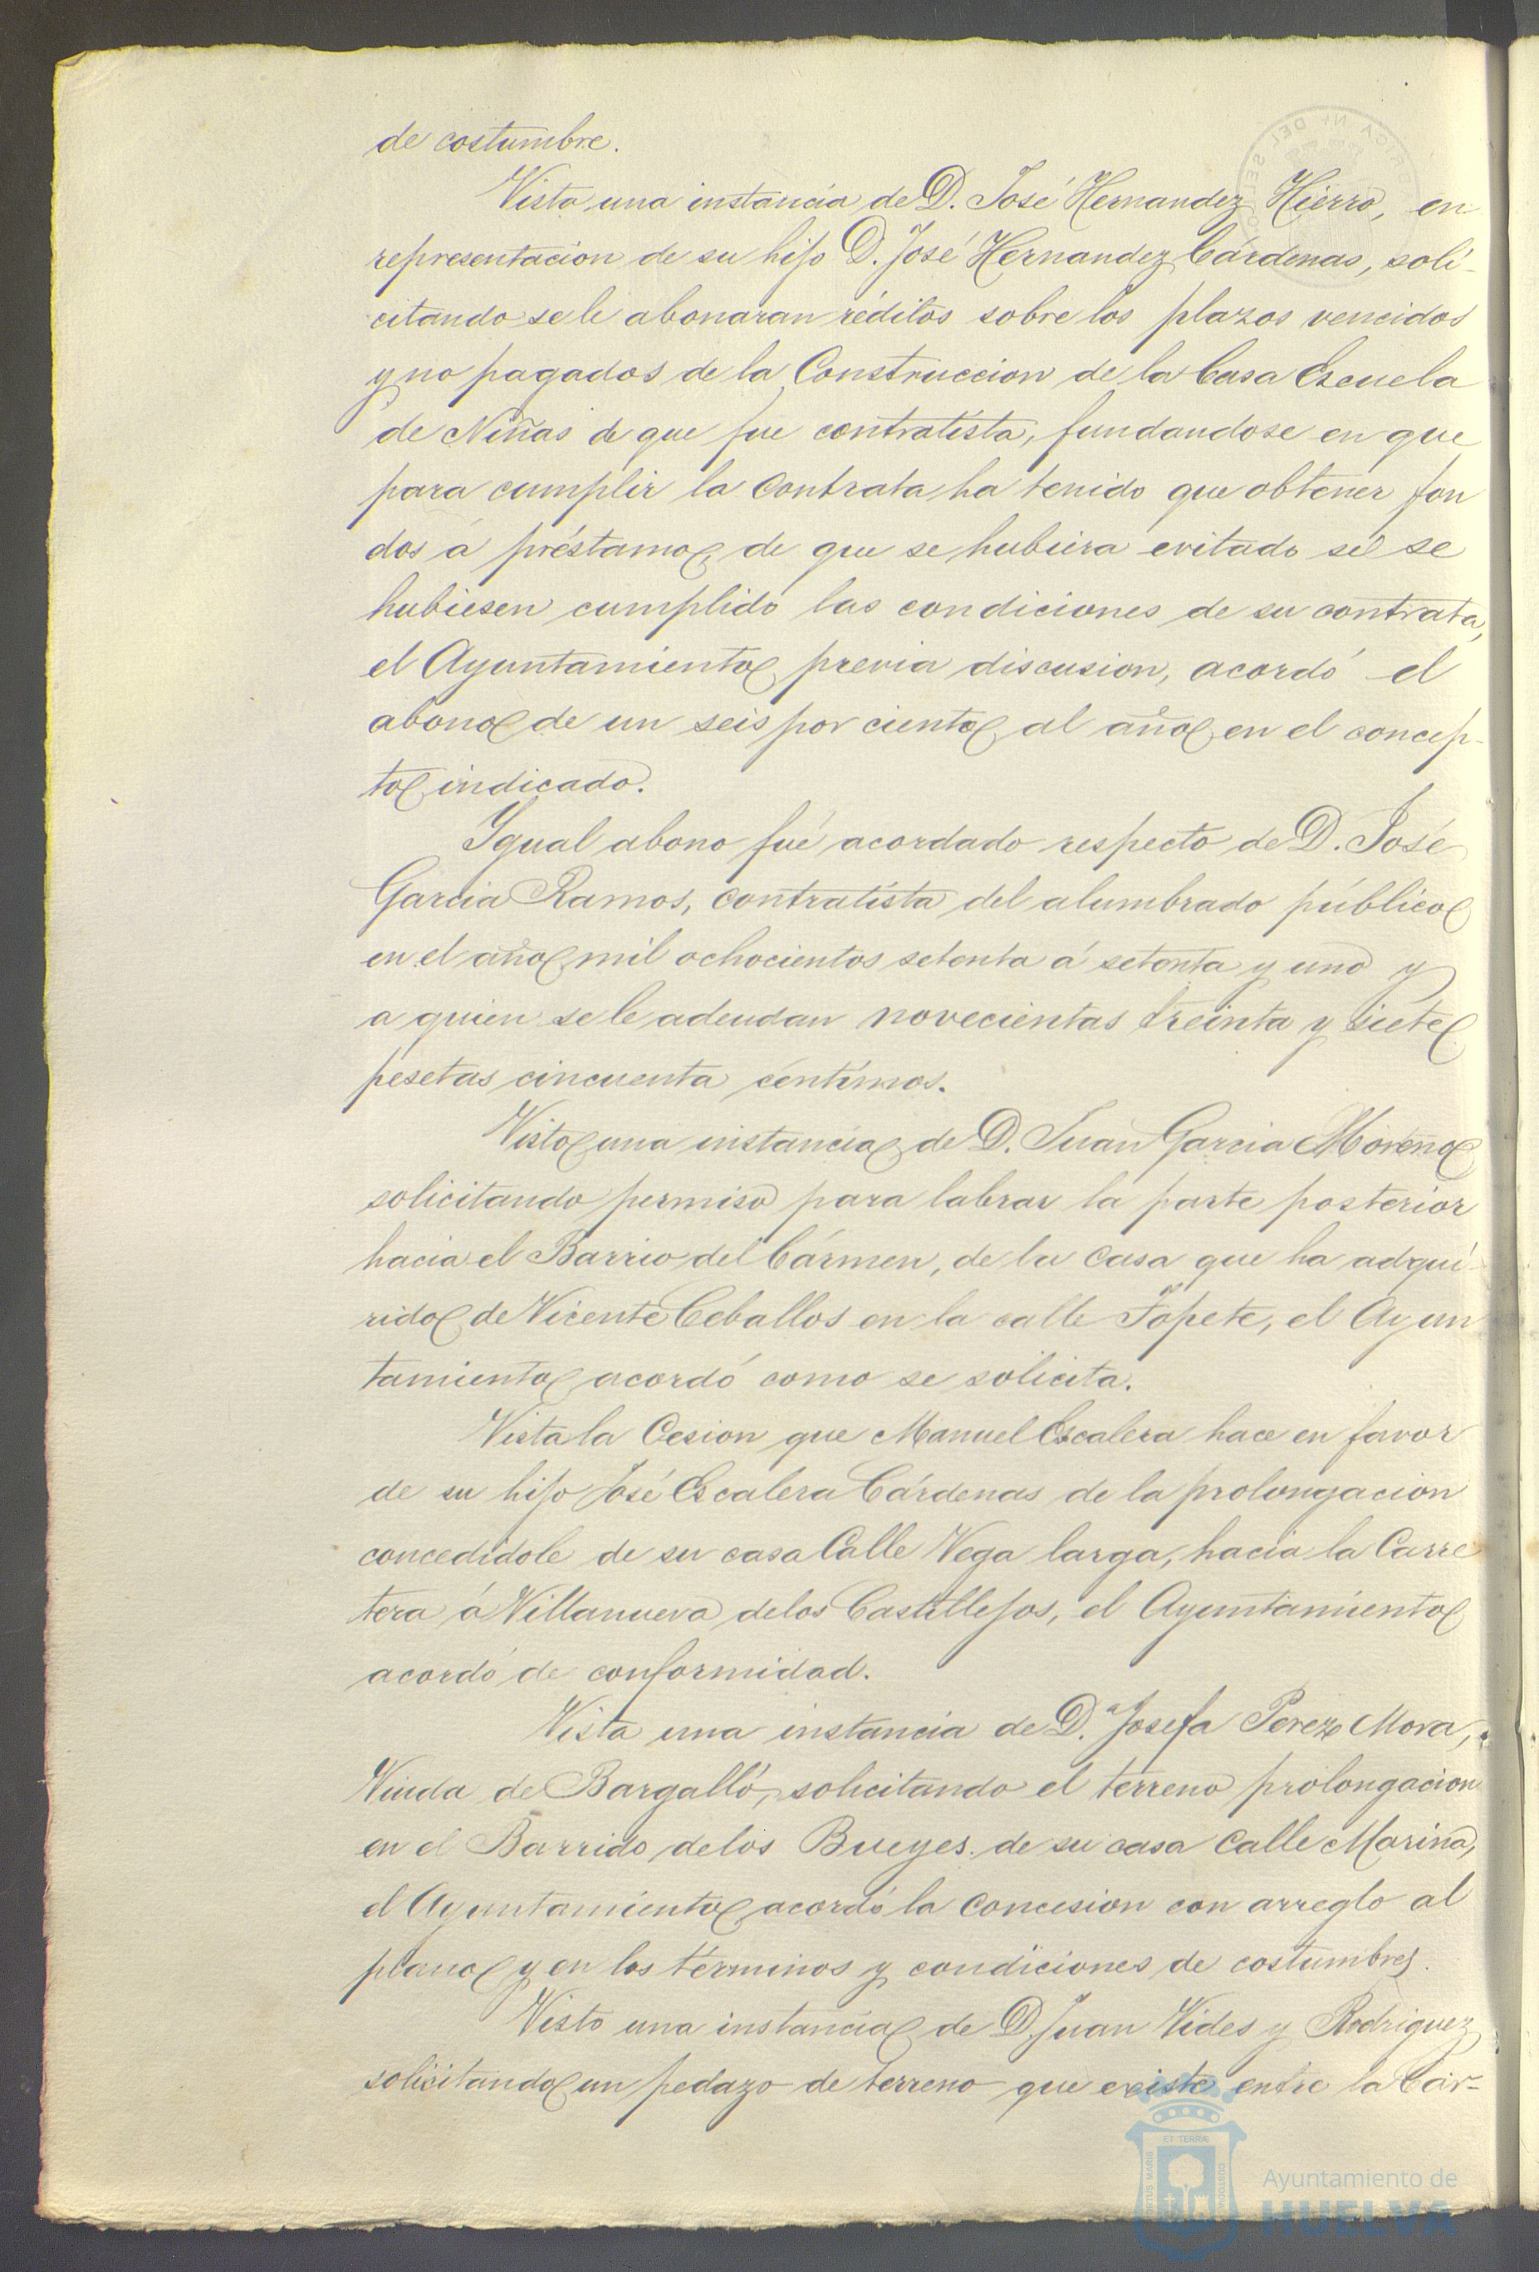 de costumbre.
Vista una instancia de D. José Hernandez Hierro, en
representacion de su hijo D. José Hernandez Cárdenas, soli-
citando se le abonaran réditos sobre los plazos vencidos
y no pagados de la Construccion de la Casa Escuela
de Niñas de que fue contratista, fundandose en que
para cumplir la contrata ha tenido que obtener fon
dos á préstamo, de que se hubiera evitado si se
hubiesen cumplido las condiciones de su contrata,
el Ayuntamiento previa discusion, acordó el
abono de un seis por ciento al año en el concep-
to indicado.
Ygual abono fué acordado respecto de D. José
Garcia Ramos, contratista del alumbrado público
en el año mil ochocientos setenta á setenta y uno y
a quien se le adeudan novecientas treinta y siete
pesetas cincuenta céntimos.
Visto una instancia de D. Juan Garcia Moreno
solicitando permiso para labrar la parte posterior
hacia el Barrio del Cármen, de la casa que ha adqui-
rido de Vicente Ceballos en la calle Topete, el Ayun
tamiento acordó como se solicita.
Vista la Cesion que Manuel Escalera hace en favor
de su hijo José Escalera Cárdenas de la prolongacion
concedidole de su casa Calle Vega larga, hacia la Carre
tera á Villanueva de los Castillejos, el Ayuntamiento
acordó de conformidad.
Vista una instancia de D.ª Josefa Perez Mora,
Viuda de Bargalló, solicitando el terreno prolongacion
en el Barrido de los Bueyes de su casa Calle Marina,
el Ayuntamiento acordó la concesion con arreglo al
plano y en los términos y condiciones de costumbre.
Visto una instancia de D. Juan Vides y Rodriguez
solicitando un pedazo de terreno que existe entre la Cár-
ET TERRÆ
Ayuntamiento de
HUELVA